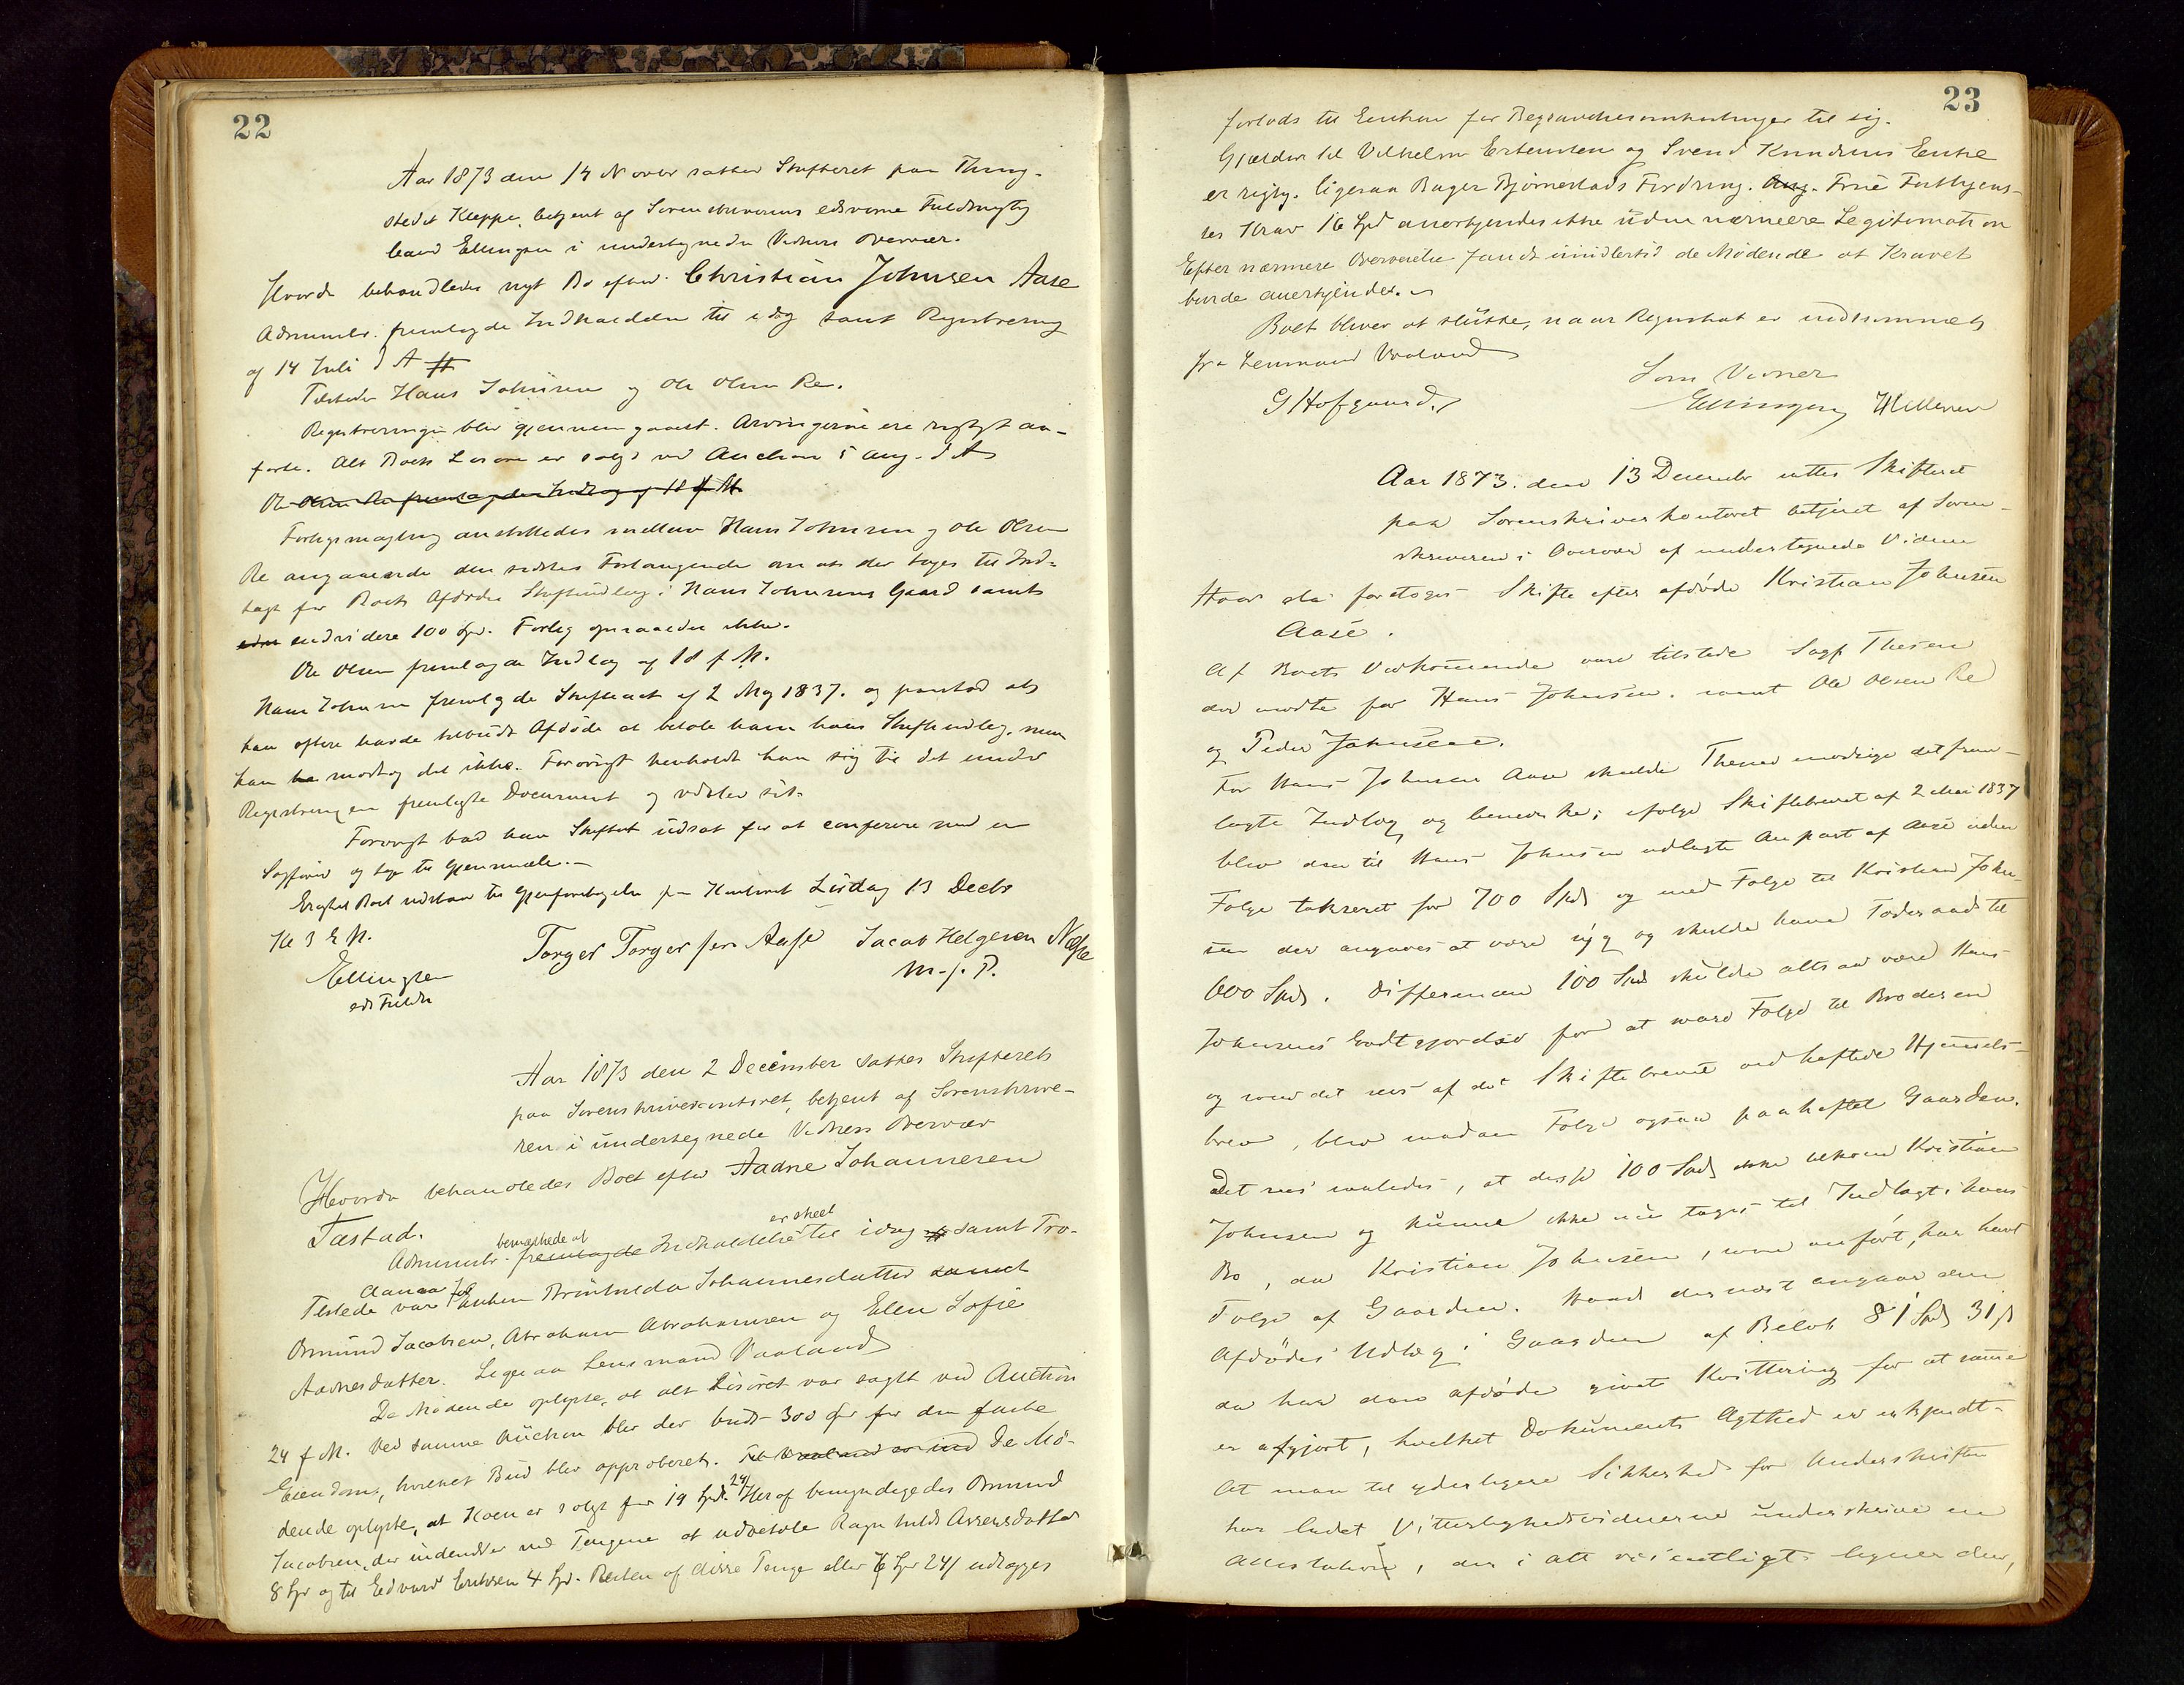 22
Aar 1873 den 14 Novbr sattes Skifteret paa Thing-
stedet Kleppe, betjent af Sorenskriverens edsvorne Fuldmægtig
Ellingsen i undertegnede Vidners Overvær.
Hvorda behandledes nyt Bo efter Christian Johnsen Aase
Adminis. fremlagde Indkaldelse til idag samt Registrering
af 14 Juli d A #
Tilstede Hans Johnsen og Ole Olsen Re.
Registreringen blev gjennemgaaet. Arvingerne ere rigtigt an-
førte. Alt Boets Løsøre er solgt ved Auction 5 Aug. d A
Ole Olsen Re fremlagde Indlæg af 18 f M.
Forligsmægling anstilledes mellem Hans Johnsen og Ole Olsen
Re angaaende den sidstes Forlangende om at der tages til Ind-
tægt for Boets Afdødes Skifteudlæg i Hans Johnsens Gaard samt
endvidere 100 Spd. Forlig opnaaedes ikke.
Ole Olsen fremlagde Indlæg af 18 f M.
Hans Johnsen fremlagde Skifteact af 2 Maj 1837. og paastod at
han oftere havde tilbudt Afdøde at betale ham hans Skifteudlæg, men
han modtog det ikke. Forøvrigt henholdt han sig til det under
Registreringen fremlagte Document og
Forøvrigt bad han Skiftet udsat for at conferere med en
Sagfører og tage til Gjenmæle.-
Eragtet Boet udstaar til Gjenforetagelse paa Kontoret Lørdag 13 Decbr
Kl 3 E M.
Ellingsen
eds Fuldm
Torger Torgersen Aase Jacob Helgesen Næsse
m. f. P.
Aar 1873 den 2 December sattes Skifterets
paa Sorenskriverkontoret, betjent af Sorenskrive-
ren i undertegnede Vidners Overvær
Hvorda behandledes Boet efter Aadne Johannesen
Tastad.
Administr. bemærkede at fremlagde Indkaldelse er skeet til idag # samt Pro-
clama
Tilstede var Enken Brünhilda Johannesdatter samt
Omund Jacobsen, Abraham Abrahamsen og Elen Sofie
Aadnesdatter. Ligesaa Lensmand Vaaland
De Mødende oplyste, at alt Løsøret var solgt ved Auction
24 f M. Ved samme Auction blev der budt 300 Spd for den faste
Eiendom, hvilket Bud blev approberet. De Mø-
dende oplyste, at Koen er solgt for 19 Spd. 24 Heraf bemyndigedes Omund
Jacobsen, der indestaar med Pengene at udbetale Ragnhild Assersdatter
8 Spd og til Edvard Eriksen 4 Spd. Resten af disse Penge eller 6 Spd 24 udlægges
23
forlods til Enken for Begravelsesomkostninger til sig.
Gjælden til Vilhelm Ertensten og Svend Knudsens Enke
er rigtig. ligesaa Bager Bjørnestads Fordring. Ang. Frue
Krav 16 Spd anerkjendes ikke uden nærmere Legitimation
Efter nærmere Overveielse fandt imidlertid de Mødende at Kravet
burde anerkjendes.
Boet bliver at slutte, naar Regnskab er indkommet
fra Lensmand Vaaland
G Hofgaard.
Som Vidner
Ellingsen Hellesen
Aar 1873. den 13 December sattes Skifteret
paa Sorenskriverkontoret betjent af Soren-
skriveren i Overvær af undertegnede Vidner
Hvor da foretoges Skifte efter afdøde Kristian Johnsen
Aase.
Af Boets Vedkommende vare tilstede Sagf Thesen
der mødte for Hans Johnsen. samt Ole Olsen Re
og Peder Johnsen.
For Hans Johnsen Aase skulde Thesen imødegaa det frem-
lagte Indlæg og bemærke; ifølge Skiftebrevet af 2 Mai 1837
blev den til Hans Johnsen udlagte Anpart af Aase uden
Følge taxseret for 700 Spd og med Følge til Kristian John-
sen der angaves at være syg og skulde have Føderaad til
600 Spd. Differencen 100 Spd skulde altsaa være Hans
Johnsens Godtgjørelse for at svare Følge til Broderen
og som det sees af det Skiftebrevet vedheftede Hjemmels-
brev, blev saadan Følge ogsaa paaheftet Gaarden.
Det sees saaledes, at disse 100 Spd ikke tilkom Kristian
Johnsen og kunne ikke nu tages til Indtægt i hans
Bo, da Kristian Johnsen, som anført, har havt
Følge af Gaarden. Hvad dernæst angaar den
Afdødes Udlæg i Gaarden af Beløb 81 Spd 31 ß
da har den afdøde givet Kvittering for at samme
er afgjort, hvilket Dokuments Ægthed er erkjendt.
At man til yderligere Sikkerhed for Underskriften
har ladet Vitterlighedsvidnerne underskrive en
Attestation, der i Alt væsentligt ligner den,